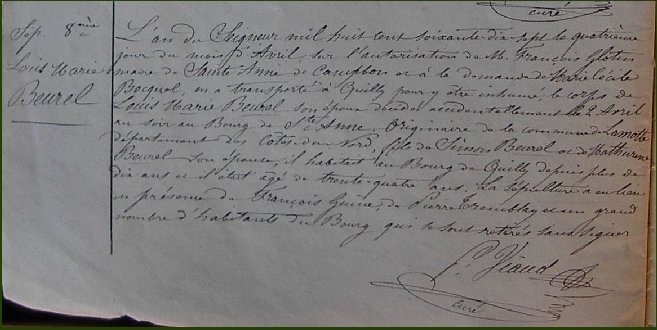 curé
Sep. 8ème
Louis Marie
Beurel
L'an du Seigneur mil huit cent soixante dix sept le quatrième
jour du mois d'Avril, sur l'autorisation de M. François
maire de Sainte Anne de Campbon et à la demande de
Bocquel, on a transporté à Quilly pour y être inhumé le corps de
Louis Marie Beurel son époux décédé accidentellement le 2 Avril
au soir au Bourg de Ste Anne. Originaire de la commune de Lamotte
département des Côtes-du-Nord, fils de Simon Beurel et de Mathurine
Beurel son épouse, il habitait au Bourg de Quilly depuis plus de
dix ans et il était agé de trente-quatre ans. La sépulture a eu lieu
en présence de François Guiné, de Pierre Tremblay et un grand
nombre d'habitants du Bourg qui se sont retirés sans signer
Viaud
curé